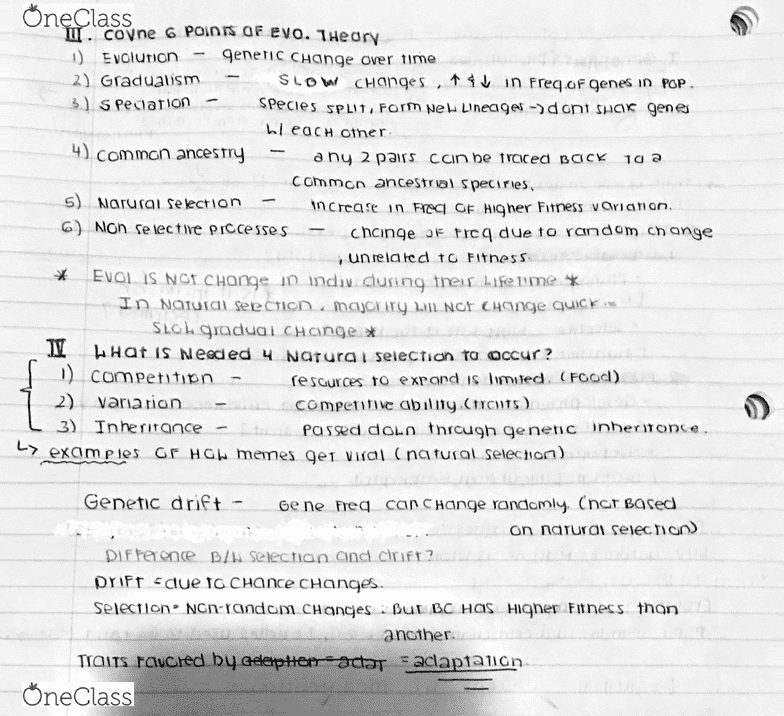 OneClass
III. COYNE 6 POINTS OF EVO. THEORY
1) Evolution - genetic change over time
2) Gradualism - SLOW changes, ↑ & ↓ in freq. of genes in pop.
3) Speciation - species split, form new lineages → dont share genes
w/ each other.
4) common ancestry - any 2 pairs can be traced back to a
common ancestrial species.
5) Natural selection - increase in freq of higher fitness variation.
6) Non selective processes - change of freq due to random change
, unrelated to fitness.
* Evol is not change in indiv. during their lifetime *
In natural selection, majority will not change quick.
Slow gradual change *
IV What is needed 4 natural selection to occur?
1) competition - resources to expand is limited. (food)
2) variation - competitive ability (traits)
3) Inheritance - passed down through genetic inheritance.
↳ examples of how memes get viral (natural selection)
Genetic drift - Gene freq can change randomly. (not based
on natural selection)
Difference b/w selection and drift?
Drift = due to chance changes.
Selection = Non-random changes. But bc has higher fitness than
another.
Traits favored by = adaptation.
OneClass